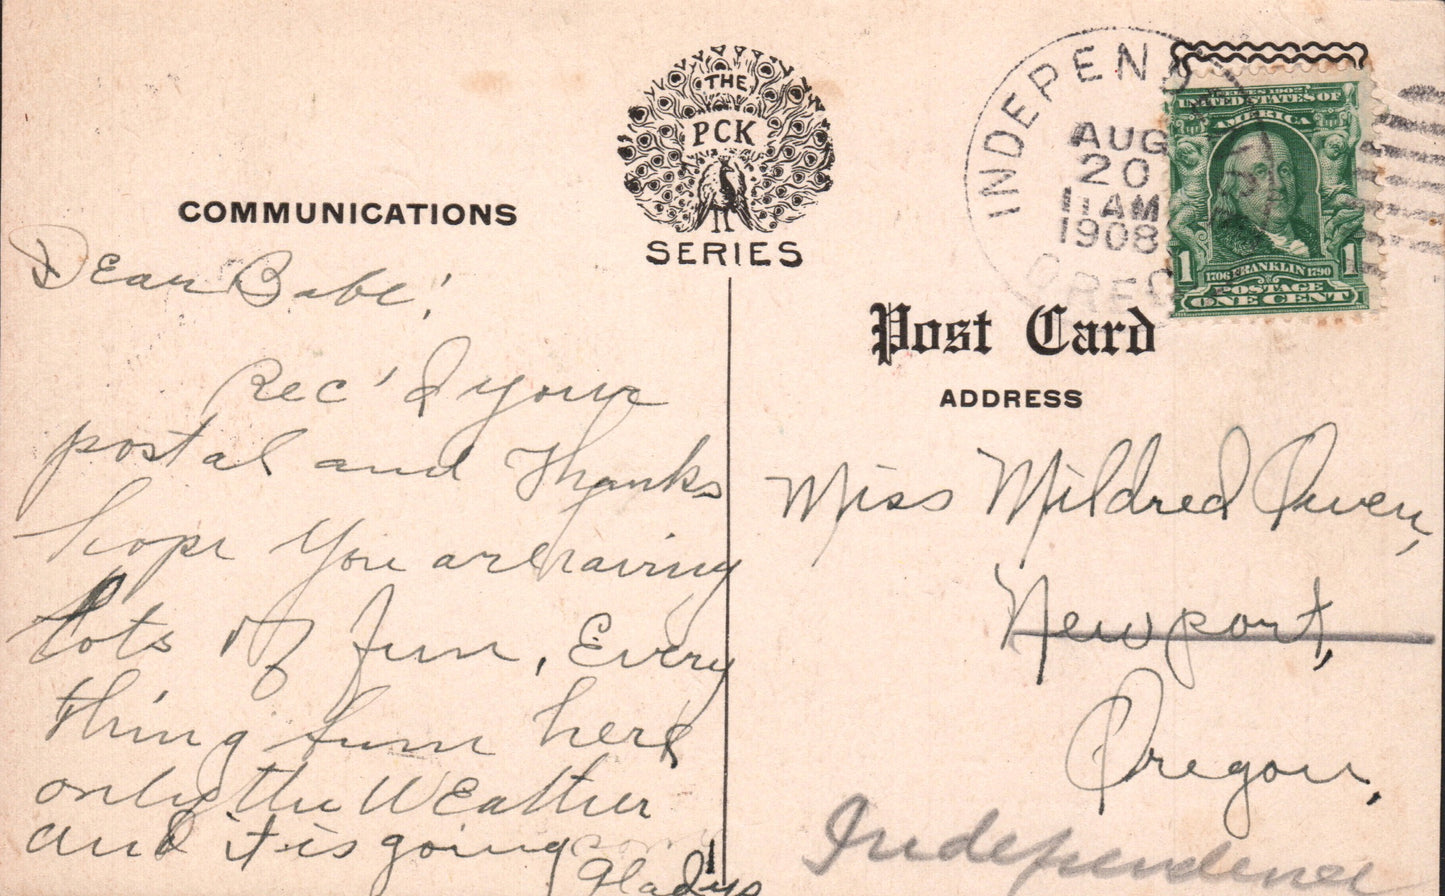 THE
PCK
SERIES
COMMUNICATIONS
Dear Babe!
Rec'd your
postal and Thanks
hope You are having
lots of fun, Every
thing fum here
only the Weather
and it is going
Gladys
INDEPENDENCE
AUG
20
11 AM
1908
OREG
SERIES 1902
UNITED STATES OF
AMERICA
1 1
1706 FRANKLIN 1790
POSTAGE
ONE CENT
Post Card
ADDRESS
Miss Mildred Owen,
Newport,
Oregon,
Independence